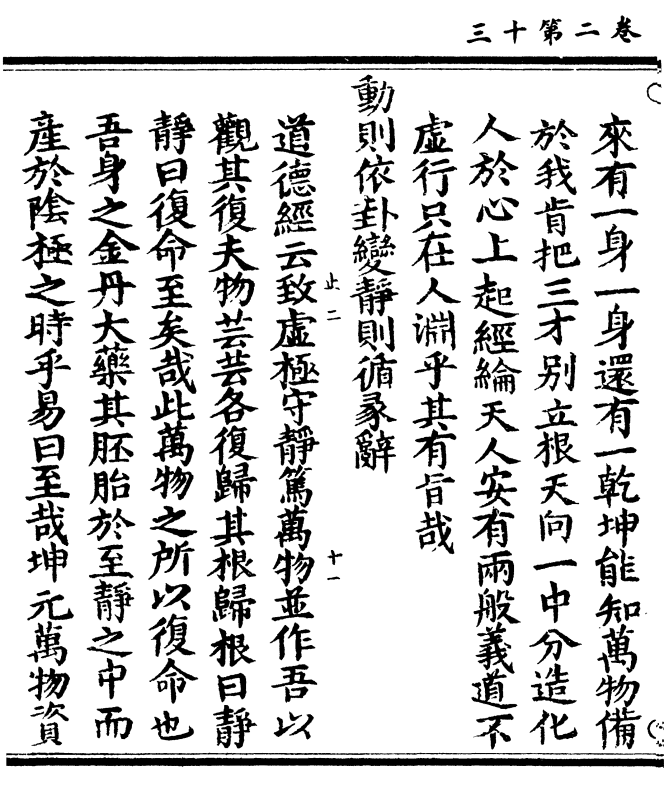 三十第二卷
來有一身一身還有一乾坤能知萬物備
於我肯把三才別立根天向一中分造化
人於心上起經綸天人安有兩般義道不
虛行只在人淵乎其有旨哉
動則依卦變靜則循彖辭
止二
十一
道德經云致虛極守靜篤萬物並作吾以
觀其復夫物芸芸各復歸其根歸根曰靜
靜曰復命至矣哉此萬物之所以復命也
吾身之金丹大藥其胚胎於至靜之中而
産於陰極之時乎易曰至哉坤元萬物資